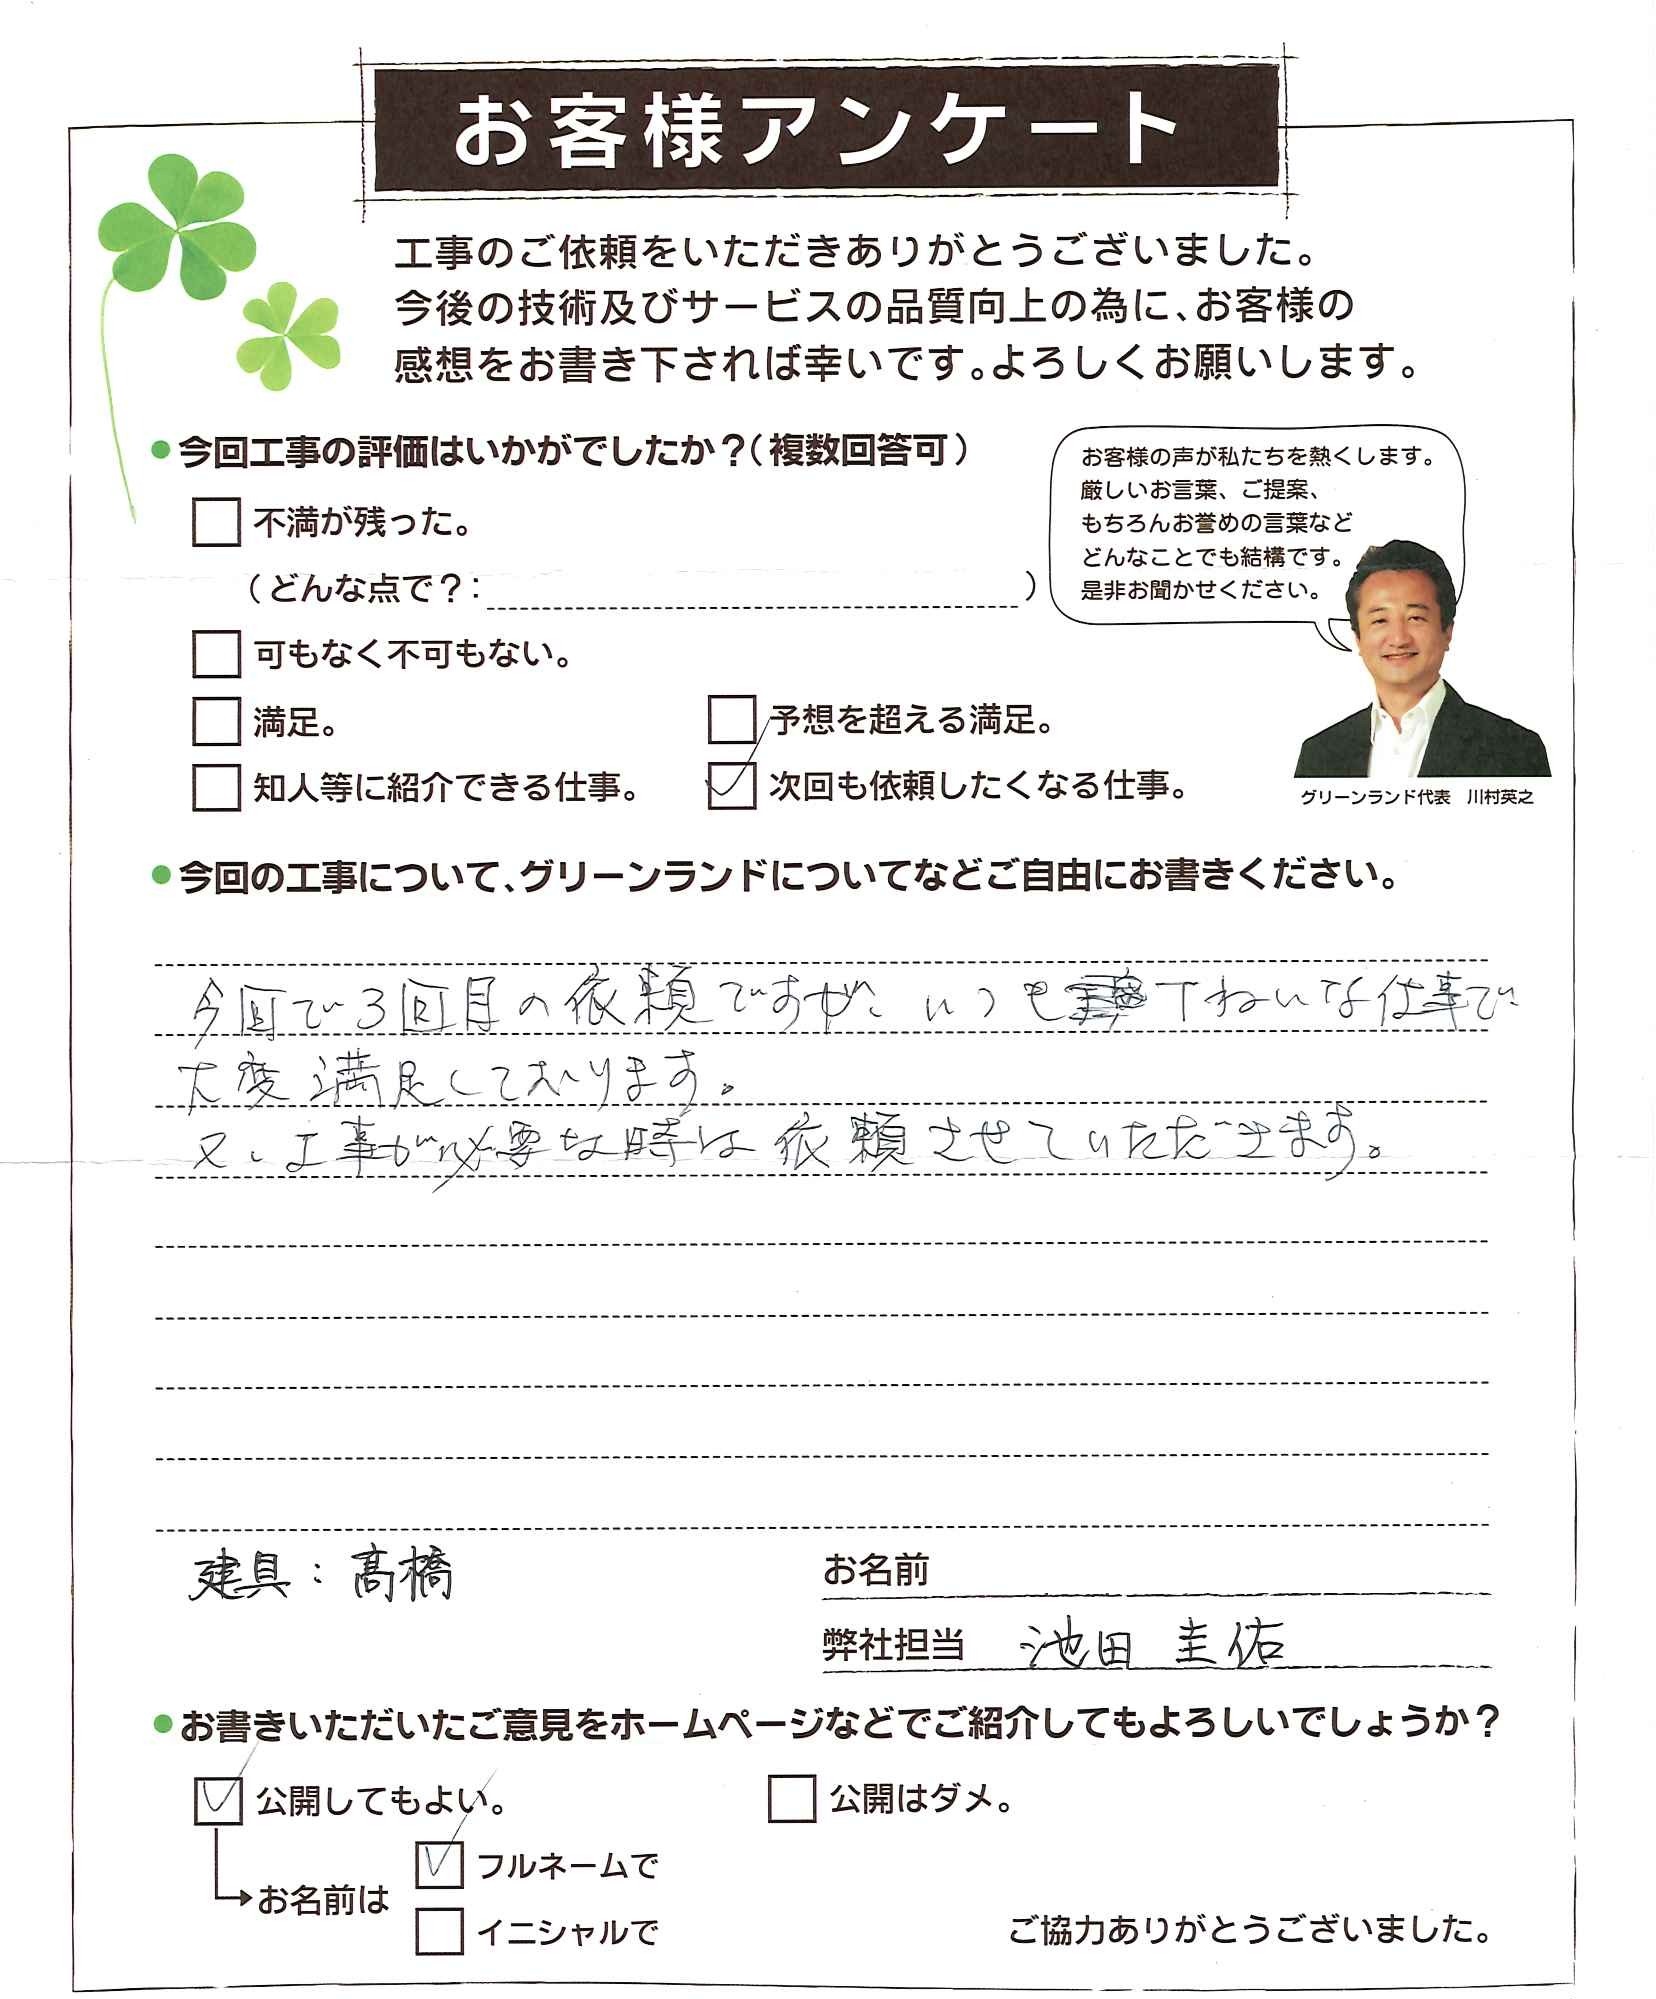 お客様アンケート
工事のご依頼をいただきありがとうございました。
今後の技術及びサービスの品質向上の為に、お客様の
感想をお書き下されば幸いです。よろしくお願いします。
●今回工事の評価はいかがでしたか？（複数回答可）
不満が残った。
（どんな点で？： ）
可もなく不可もない。
満足。
予想を超える満足。
知人等に紹介できる仕事。
次回も依頼したくなる仕事。
お客様の声が私たちを熱くします。
厳しいお言葉、ご提案、
もちろんお誉めの言葉など
どんなことでも結構です。
是非お聞かせください。
グリーンランド代表　川村英之
●今回の工事について、グリーンランドについてなどご自由にお書きください。
今回で3回目の依頼ですが、いつも丁ねいな仕事で
大変満足しております。
又、工事が必要な時は依頼させていただきます。
建具：髙橋
お名前
弊社担当　池田 圭佑
●お書きいただいたご意見をホームページなどでご紹介してもよろしいでしょうか？
公開してもよい。
公開はダメ。
お名前は
フルネームで
イニシャルで
ご協力ありがとうございました。